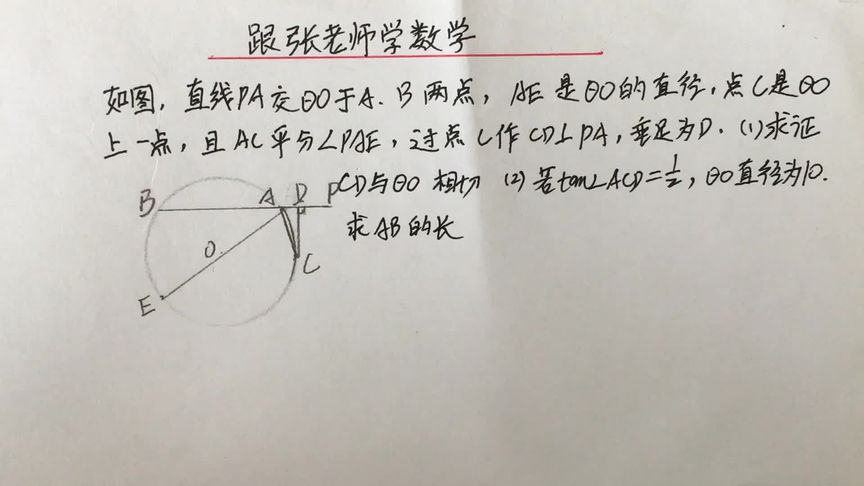 跟张老师学数学
如图，直线PA交⊙O于A．B两点，AE是⊙O的直径，点C是⊙O
上一点，且AC平分∠PAE，过点C作CD⊥PA，垂足为D．(1)求证
CD与⊙O相切 (2)若tan∠ACD=1/2，⊙O直径为10.
求AB的长
B A D P
O
C
E